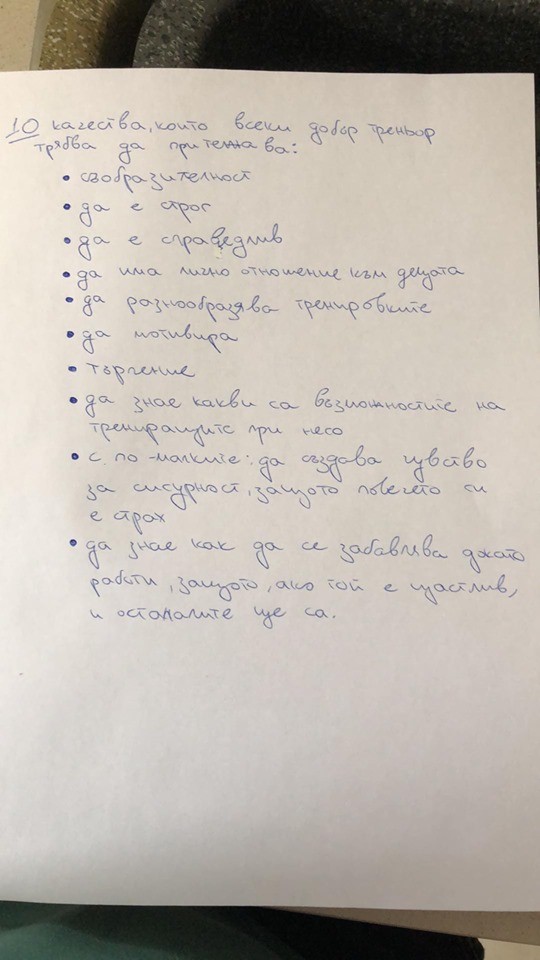 10 качества, които всеки добър треньор
трябва да притежава:
• съобразителност
• да е строг
• да е справедлив
• да има лично отношение към децата
• да разнообразява тренировките
• да мотивира
• търпение
• да знае какви са възможностите на
трениращите при него
• с по-малките: да създава чувство
за сигурност, защото повечето ги
е страх
• да знае как да се забавлява докато
работи, защото, ако той е щастлив,
и останалите ще са.